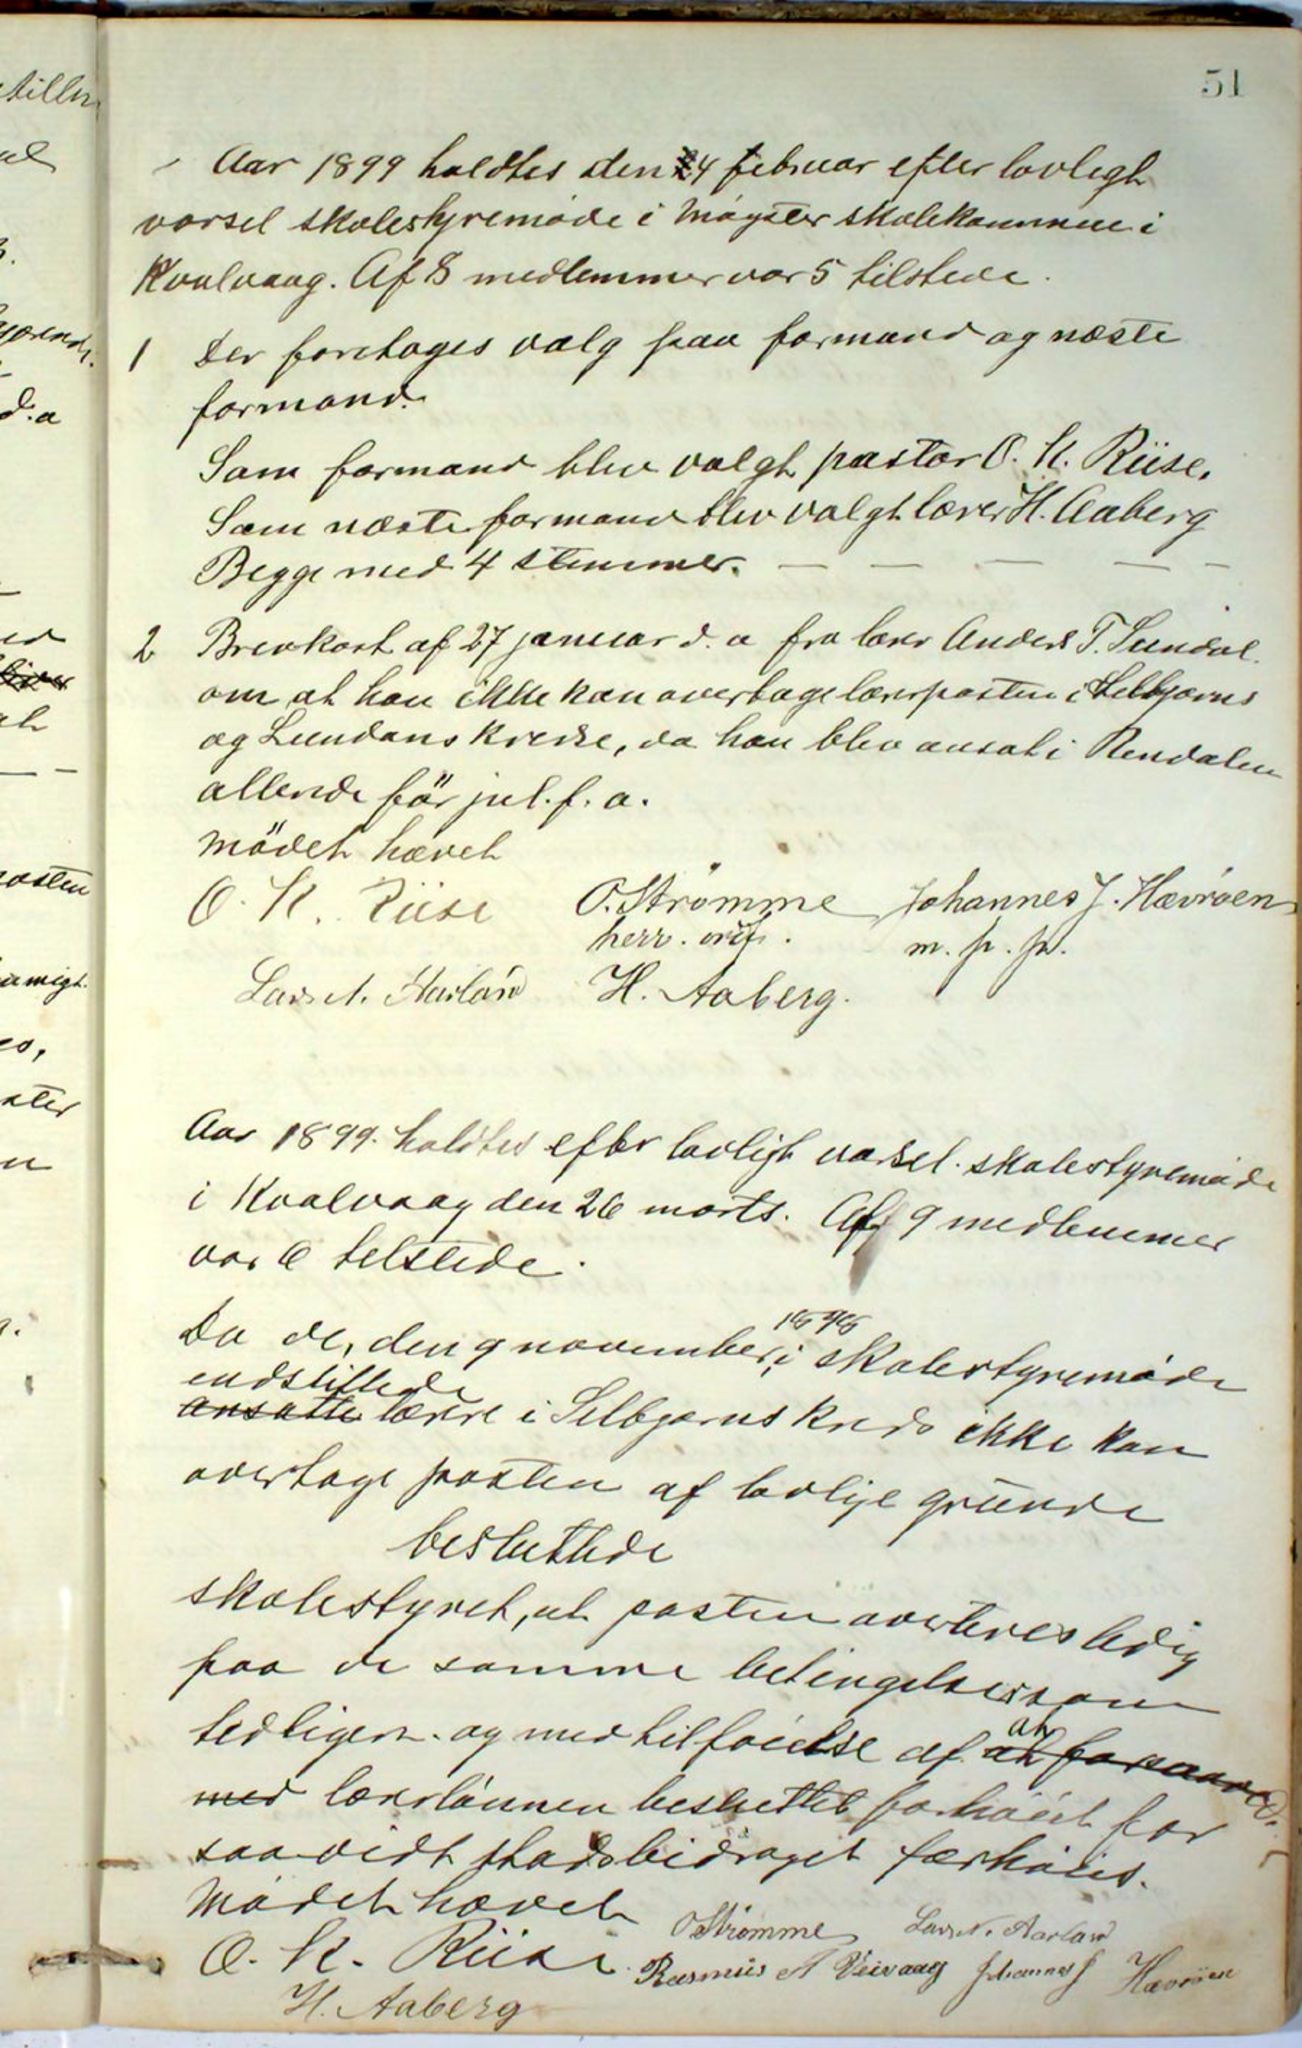 51
Aar 1899 holdtes den 4 februar efter lovligt
varsel skolestyremøde i Møgster skolekommune i
Kvalvaag. Af 8 medlemmer var 5 tilstede.
1 Der foretoges valg paa formand og næste
formand.
Som formand blev valgt pastor O. K. Riise.
Som næste formand blev valgt lærer H. Aaberg
Begge med 4 stemmer. — — — — —
2 Brevkort af 27 januar d. a fra lærer Anders T. Sundal.
om at han ikke kan overtage lærerposten i Selbjørns
og Lundøns kredse, da han blev ansat i Rendalen
allerede før jul. f. a.
Mødet hævet
O. K. Riise O. Strømme Johannes J. Hævrøen
herr. ordf. m. p. p.
Lars N. Aarland H. Aaberg.
Aar 1899. holdtes efter lovligt varsel. skolestyremøde
i Kvalvaag den 26 marts. Af 9 medlemmer
var 6 tilstede.
1898
Da de, den 9 november, i skolestyremøde
endstillede
ansatte lærere i Selbjørns kreds ikke kan
overtage posten af lovlige grunde
besluttede
skolestyret, at posten averteres ledig
paa de samme betingelser som
tidligere. og med tilføielse af at
med lærerlønnen besluttet forhøiet for
saavidt stadsbidraget forhøies.
Mødet hævet
O. Strømme Lars N. Aarland
O. K. Riise Rasmus A Veivaag Johannes J Hævrøen
H. Aaberg